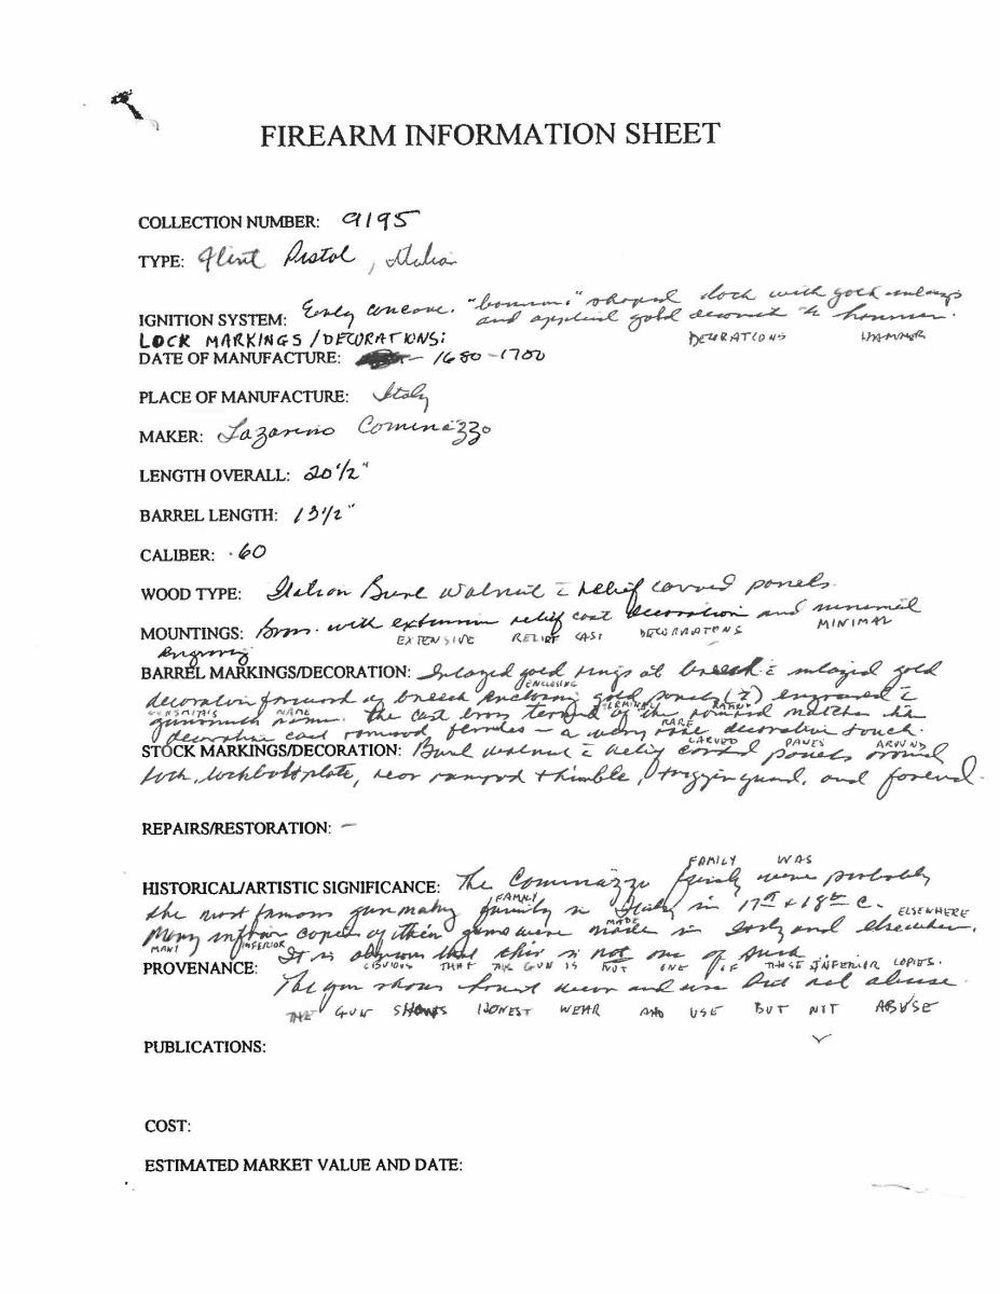 FIREARM INFORMATION SHEET
COLLECTION NUMBER: 9195
TYPE: Flint Pistol, Italian
IGNITION SYSTEM: Early concave "banana" shaped lock with gold inlays
and applied gold decorat to hammer.
LOCK MARKINGS/DECORATIONS: DECORATIONS HAMMER
DATE OF MANUFACTURE: 1680-1700
PLACE OF MANUFACTURE: Italy
MAKER: Lazarino Cominazzo
LENGTH OVERALL: 20 1/2"
BARREL LENGTH: 13 1/2"
CALIBER: .60
WOOD TYPE: Italian Burl walnut c̄ relief carved panels.
MOUNTINGS: with extensive relief cast decoration and minimal
EXTENSIVE RELIEF CAST DECORATIONS MINIMAL
engraving
BARREL MARKINGS/DECORATION: Inlayed gold rings at breech c̄ inlayed gold
ENCLOSING
decoration forward of breech enclosing gold panels (2) engraved c̄
GUNSMITH'S NAME TERMINAL RAMROD
gunsmith name. The cast iron terminal of the ramrod matches the
RARE
decorative cast ramrod ferrules - a very rare decorative touch.
CARVED PANELS AROUND
STOCK MARKINGS/DECORATION: Burl walnut c̄ relief carved panels around
lock, lockbolt plate, rear ramrod thimble, trigger guard, and forend.
REPAIRS/RESTORATION: -
FAMILY WAS
HISTORICAL/ARTISTIC SIGNIFICANCE: The Cominazzo family were probably
FAMILY
the most famous gunmaking family in Italy in 17th + 18th c.
MADE ELSEWHERE
Many inferior copies of their guns were made in Italy and elsewhere.
MANY INFERIOR
It is obvious that this is not one of such
PROVENANCE: OBVIOUS THAT THE GUN IS NOT ONE OF THOSE INFERIOR COPIES.
The gun shows honest wear and use but not abuse.
THE GUN SHOWS HONEST WEAR AND USE BUT NOT ABUSE
PUBLICATIONS:
COST:
ESTIMATED MARKET VALUE AND DATE: